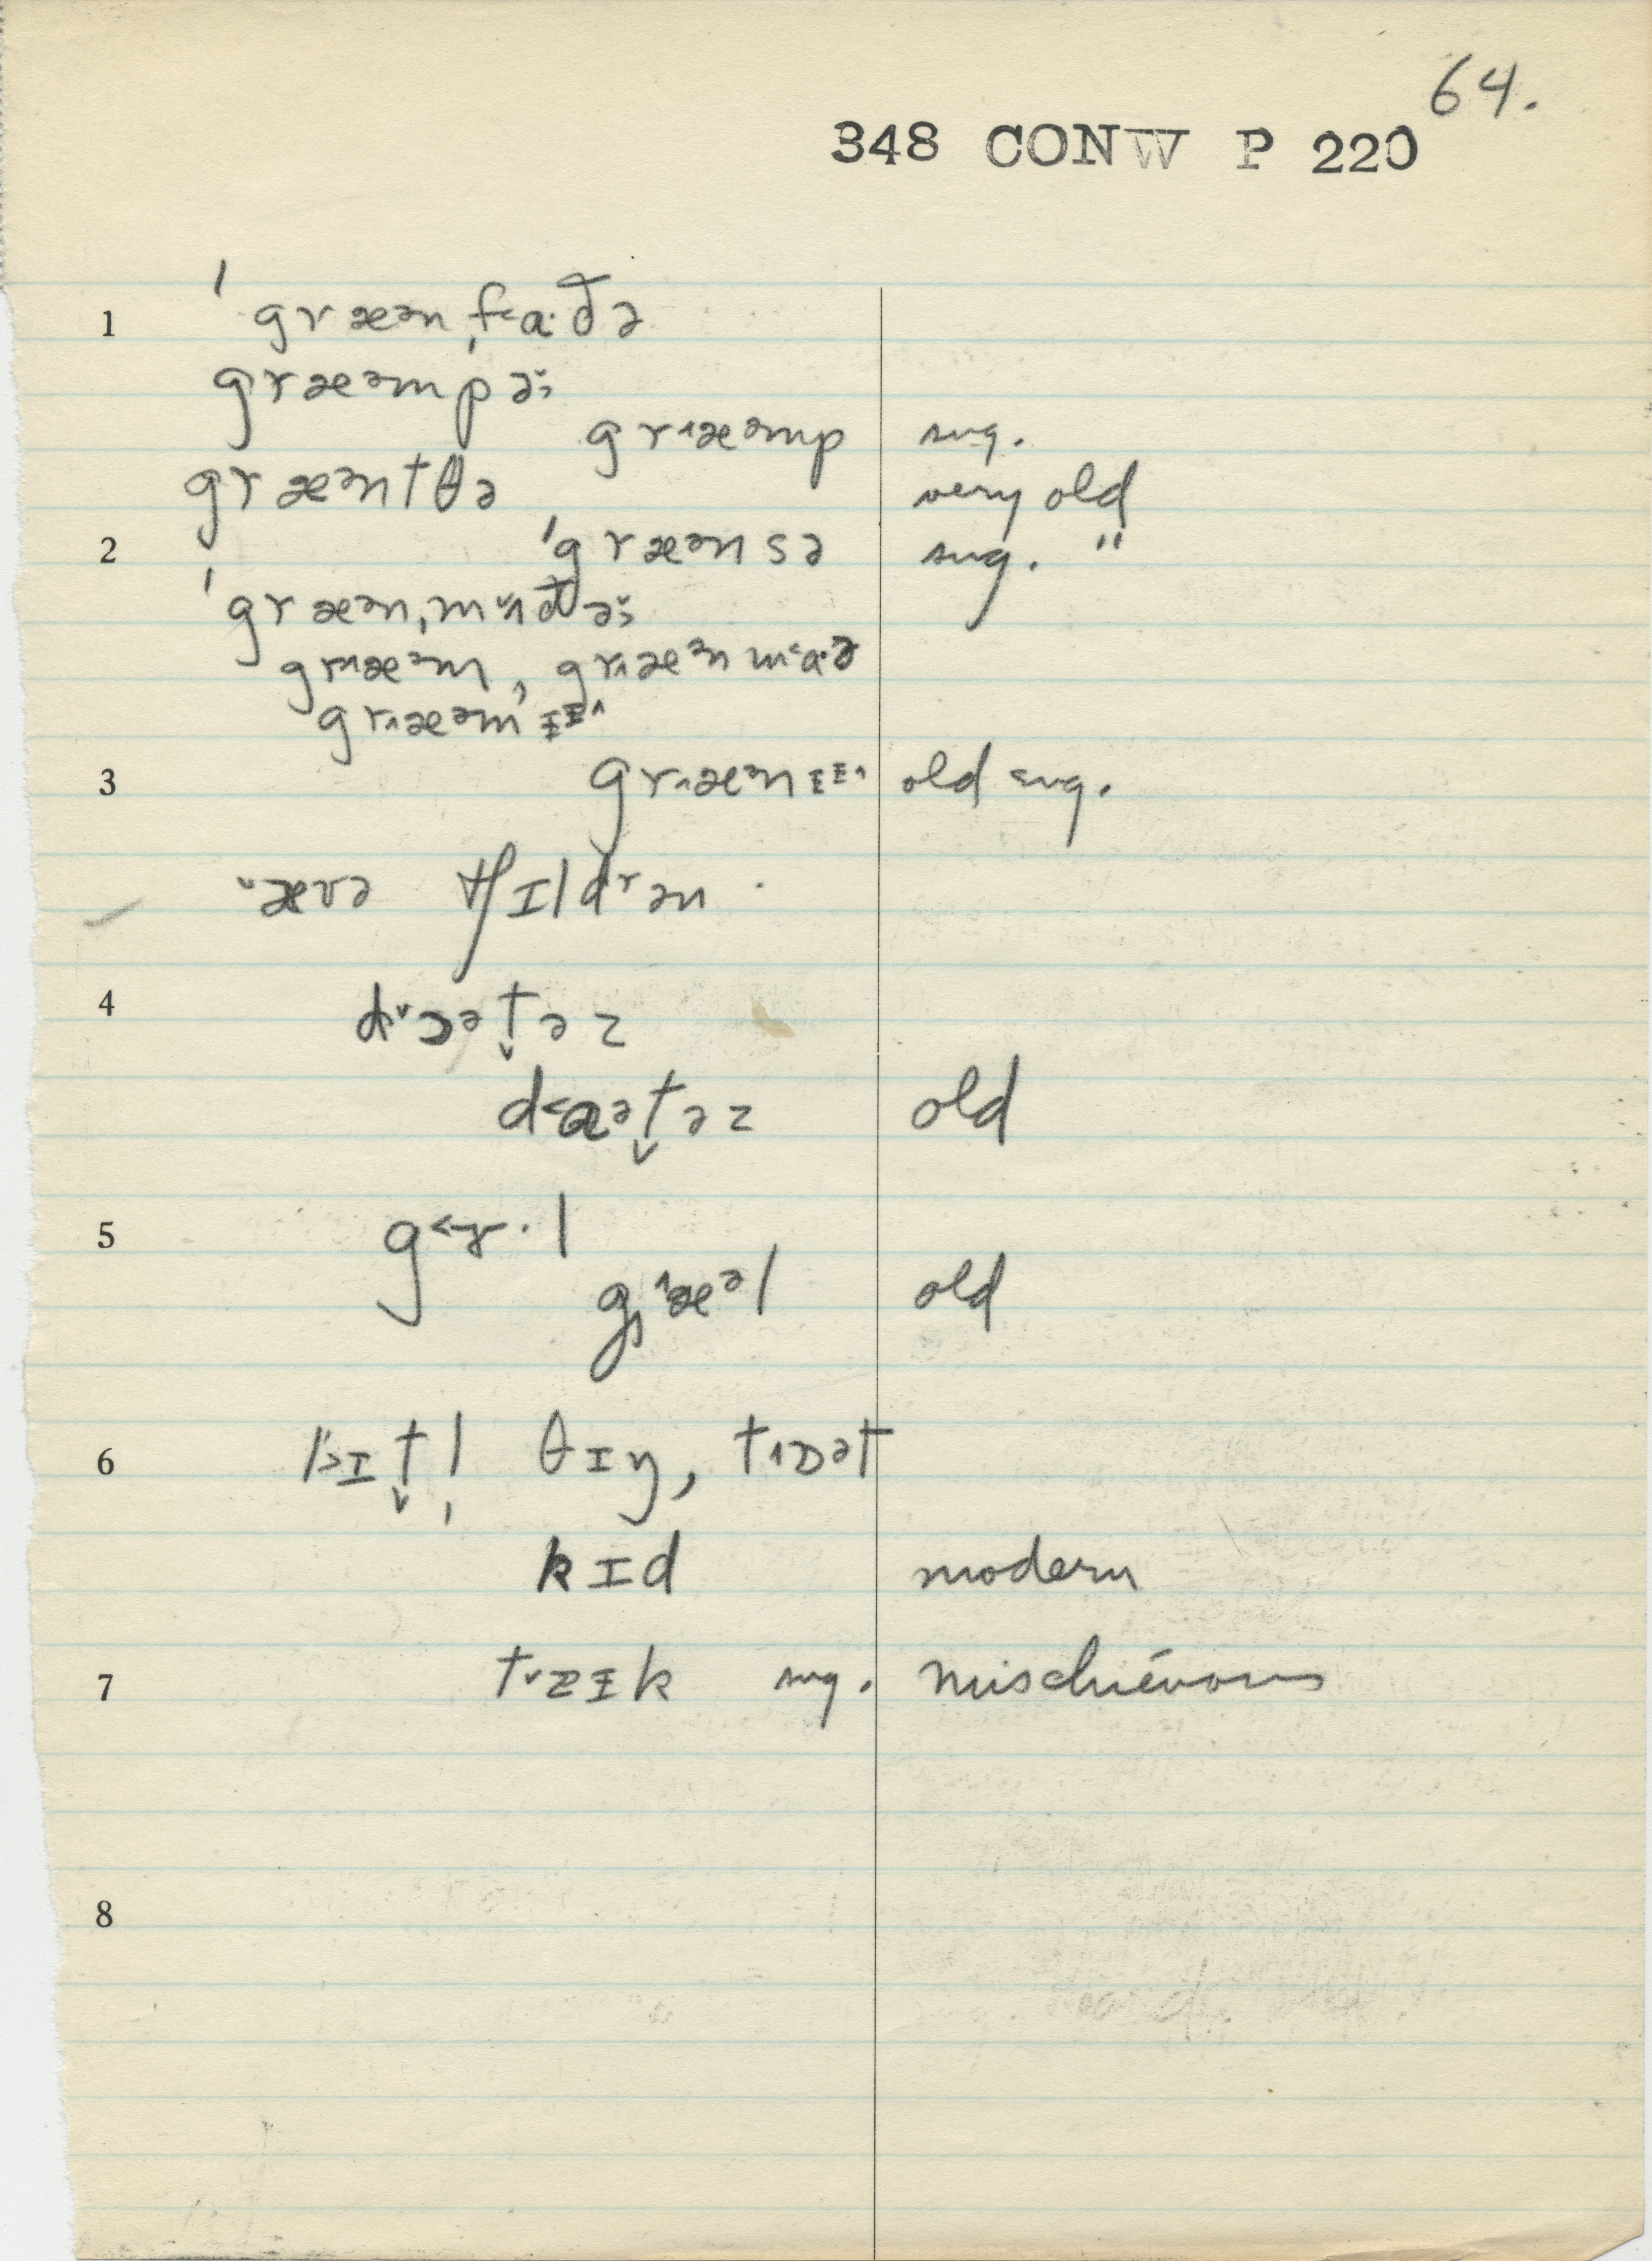 64.
348 CONW P 220
1 ˈgræᵊn ˌf˂a·ðə
græᵊmpə˅˒
gr˄æᵊmp sug.
græᵊntθə very old
2 ˈgræᵊnsə sug. "
ˈgræᵊnˌmʌ˅ðə˅˒
gr˄æᵊm, gr˄æᵊnm˂a·ə
gr˄æᵊmɪɪ˄
3 gr˄æᵊnɪɪ˄ old sug.
˅ævə tʃɪldrən
4 d˅ɔᵊt̬əz
d˂aᵊt̬əz old
5 g˂ɝ·l
g˒˄æᵊl old
6 lɪt̬l̩ θɪŋ, t˄ɒət
kɪd modern
7 t˅zɪk sug. mischiévous
8